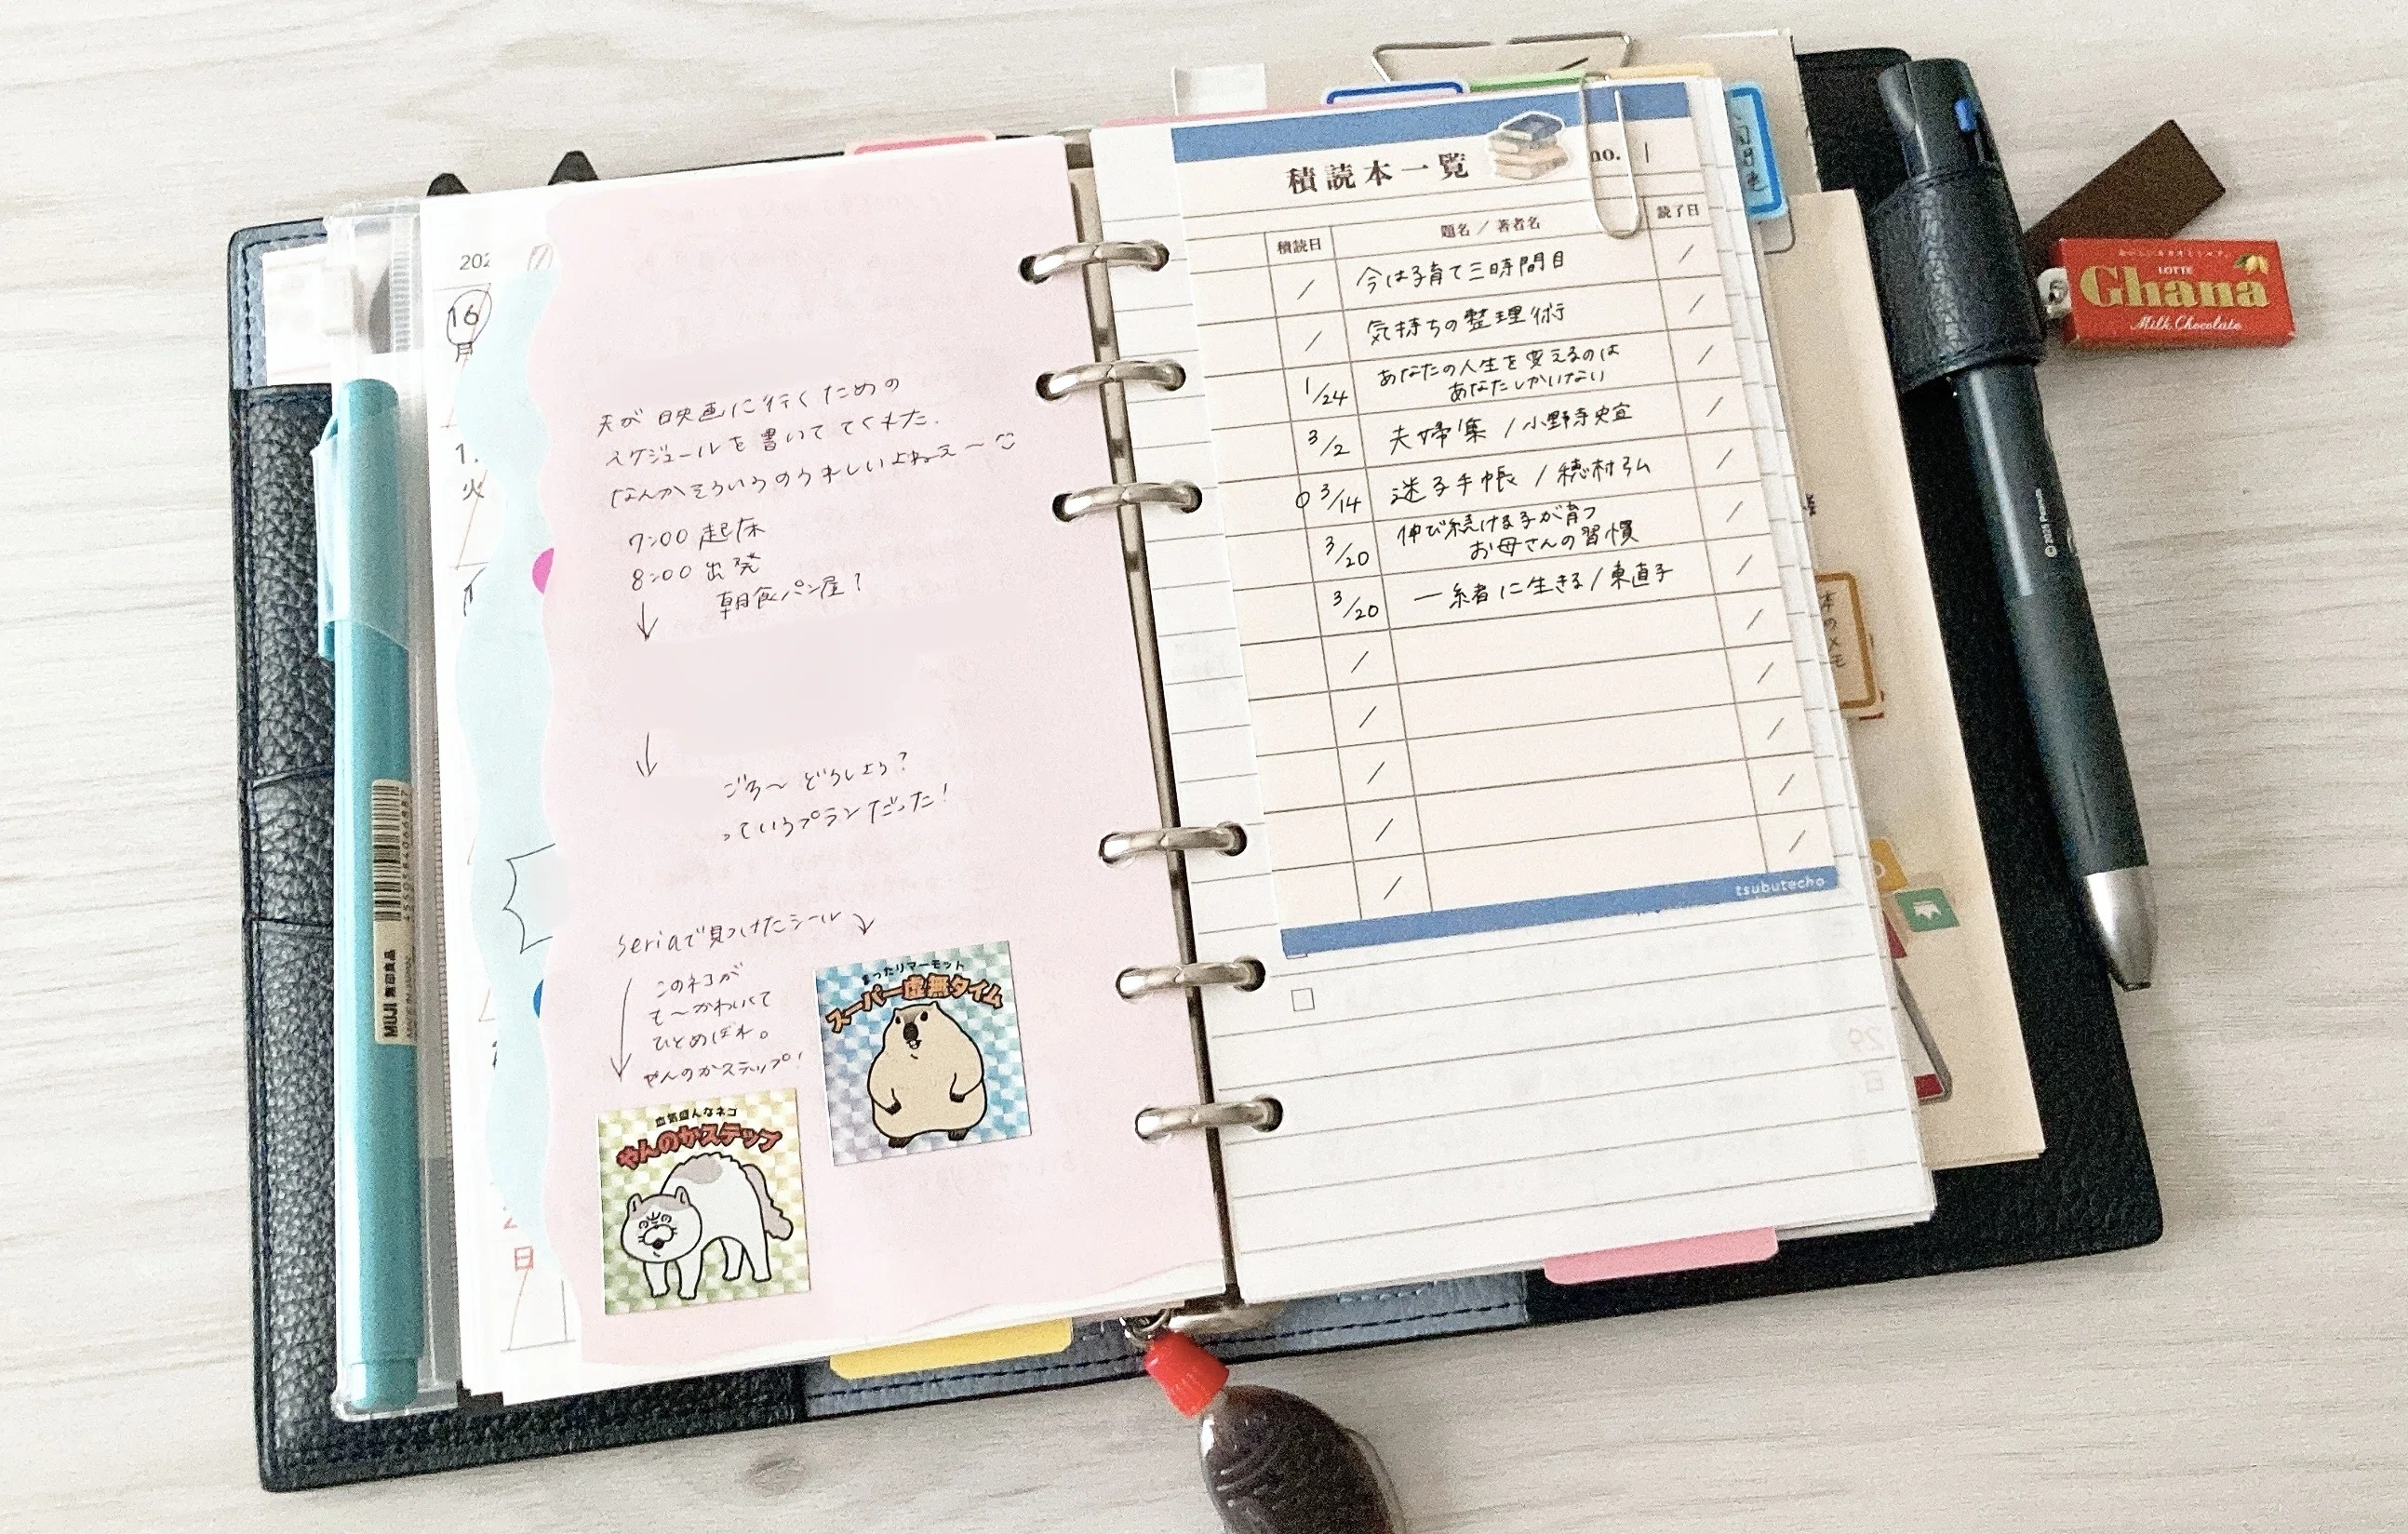 202
16
月
1.
火
日
夫が映画に行くための
スケジュールを書いててくれた.
なんかそういうのうれしいよねえ〜
7:00 起床
8:00 出発
朝食パン屋?
↓
↓
ごろ〜どうしよう?
っていうプランだった!
Seriaで見つけたシール
このネコが
て〜かわいくて
ひとめぼれ。
やんのかステップ!
まったりマーモット
スーパー虚無タイム
血気盛んなネコ
やんのかステップ
MUJI 無印良品
4550584066887
積読本一覧
no. 1
積読日 題名/著者名 読了日
/ 今は子育て三時間目 /
/ 気持ちの整理術 /
1/24 あなたの人生を変えるのは
あなたしかいない /
3/2 夫婦集/小野寺史宜 /
3/14 迷子手帳/穂村弘 /
3/20 伸び続ける子が育つ
お母さんの習慣 /
3/20 一緒に生きる/東直子 /
tsubutecho
本のメモ
29
日
LOTTE
Ghana
Milk Chocolate